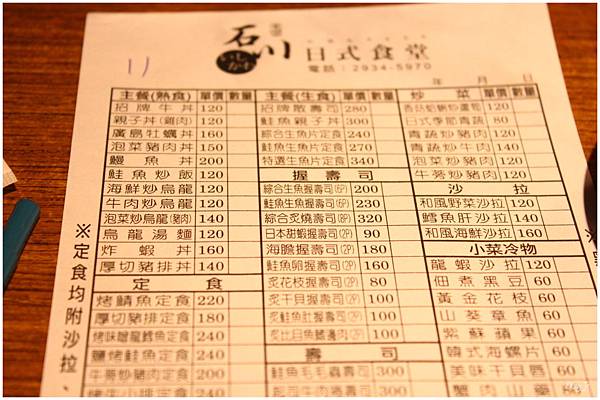 石川 日式食堂
電話:2934-5970
11
年 月 日
主餐(熱食) 單價 數量
招牌牛丼 120
親子丼(雞肉) 120
廣島牡蠣丼 160
泡菜豬肉丼 150
鰻魚丼 200
鮭魚炒飯 120
海鮮炒烏龍 120
牛肉炒烏龍 120
泡菜炒烏龍(豬肉) 140
烏龍湯麵 120
炸蝦丼 160
厚切豬排丼 140
定食
烤鯖魚定食 220
厚切豬排定食 180
烤味噌龍鱈魚定食 240
鹽烤鮭魚定食 240
牛蒡炒豬肉定食 200
※定食均附沙拉、
主餐(生食) 單價 數量
招牌散壽司 280
鮭魚親子丼 300
綜合生魚片定食 240
鮭魚生魚片定食 270
特選生魚片定食 340
握壽司
綜合生魚握壽司(6P) 200
鮭魚生魚握壽司(6P) 230
綜合炙燒握壽司(8P) 320
日本甜蝦握壽司(2P) 90
海膽握壽司(2P) 180
鮭魚卵握壽司(2P) 160
炙花枝握壽司(2P) 80
炙干貝握壽司(2P) 100
炙鮭魚肚握壽司(2P) 100
炙比目魚鰭邊肉(2P) 100
壽司
鮭魚毛毛蟲壽司 300
300
炒菜 單價 數量
120
日式季節青蔬 80
青蔬炒豬肉 120
青蔬炒牛肉 140
泡菜炒豬肉 120
牛蒡炒豬肉 120
沙拉
和風野菜沙拉 120
鱈魚肝沙拉 140
和風海鮮沙拉 160
小菜冷物
龍蝦沙拉 120
佃煮黑豆 60
黃金花枝 60
山葵章魚 60
紫蘇蘋果 60
韓式海螺片 60
美味干貝唇 60
蟹肉山藥 80